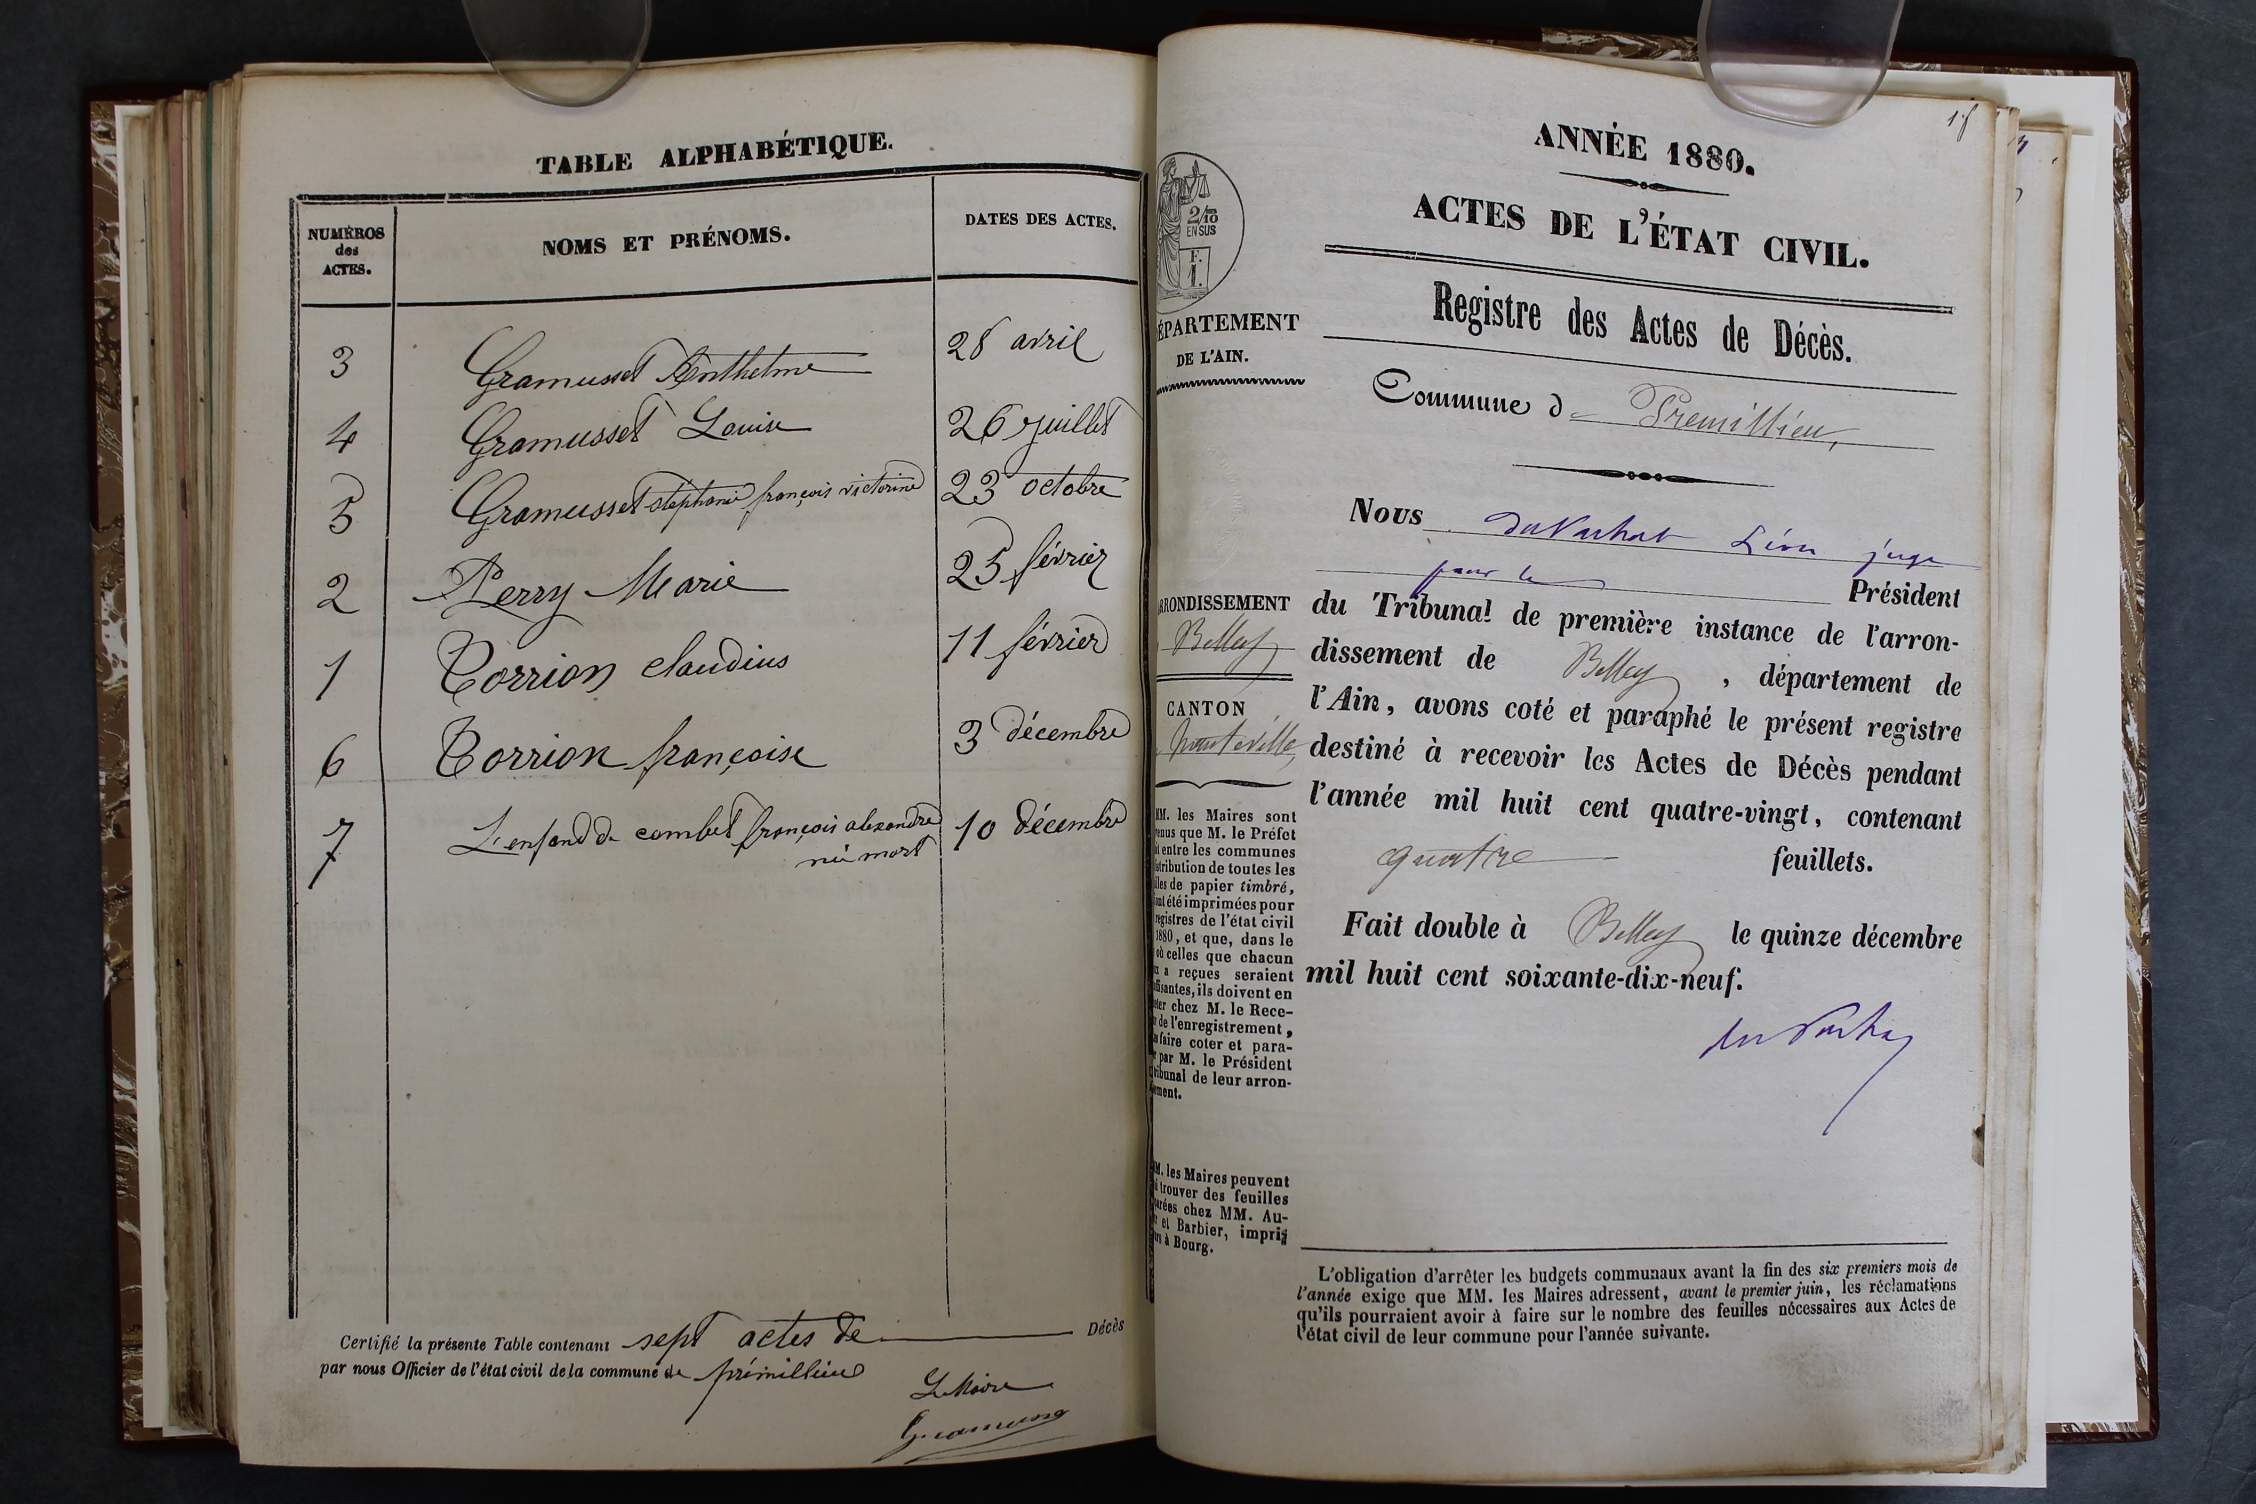 TABLE ALPHABÉTIQUE.
NUMÉROS des ACTES. NOMS ET PRÉNOMS. DATES DES ACTES.
3 Gramusset Anthelme 28 avril
4 Gramusset Louise 26 juillet
5 Gramusset stéphanie françois victorine 23 octobre
2 Perry Marie 25 février
1 Torrion claudius 11 février
6 Torrion françoise 3 décembre
7 L'enfand de combet françois alexandre 10 décembre
né mort
Certifié la présente Table contenant sept actes de Décès
par nous Officier de l'état civil de la commune de prémillieu
Le Maire
18
ANNÉE 1880.
ACTES DE L'ÉTAT CIVIL.
2/10
EN SUS
F.
1.
ÉPARTEMENT
DE L'AIN.
Registre des Actes de Décès.
Commune d Premillieu,
Nous Léon juge
pour le Président
du Tribunal de première instance de l'arron-
dissement de Belley, département de
l'Ain, avons coté et paraphé le présent registre
destiné à recevoir les Actes de Décès pendant
l'année mil huit cent quatre-vingt, contenant
quatre feuillets.
Fait double à Belley le quinze décembre
mil huit cent soixante-dix-neuf.
RRONDISSEMENT
Belley
CANTON
hauteville
MM. les Maires sont
enus que M. le Préfet
entre les communes
stribution de toutes les
lles de papier timbré,
ont été imprimées pour
registres de l'état civil
1880, et que, dans le
où celles que chacun
x a reçues seraient
ffisantes, ils doivent en
ter chez M. le Rece-
r de l'enregistrement,
faire coter et para-
r par M. le Président
ribunal de leur arron-
ement.
M. les Maires peuvent
trouver des feuilles
arées chez MM. Au-
et Barbier, impri-
rs à Bourg.
L'obligation d'arrêter les budgets communaux avant la fin des six premiers mois de
l'année exige que MM. les Maires adressent, avant le premier juin, les réclamations
qu'ils pourraient avoir à faire sur le nombre des feuilles nécessaires aux Actes de
l'état civil de leur commune pour l'année suivante.